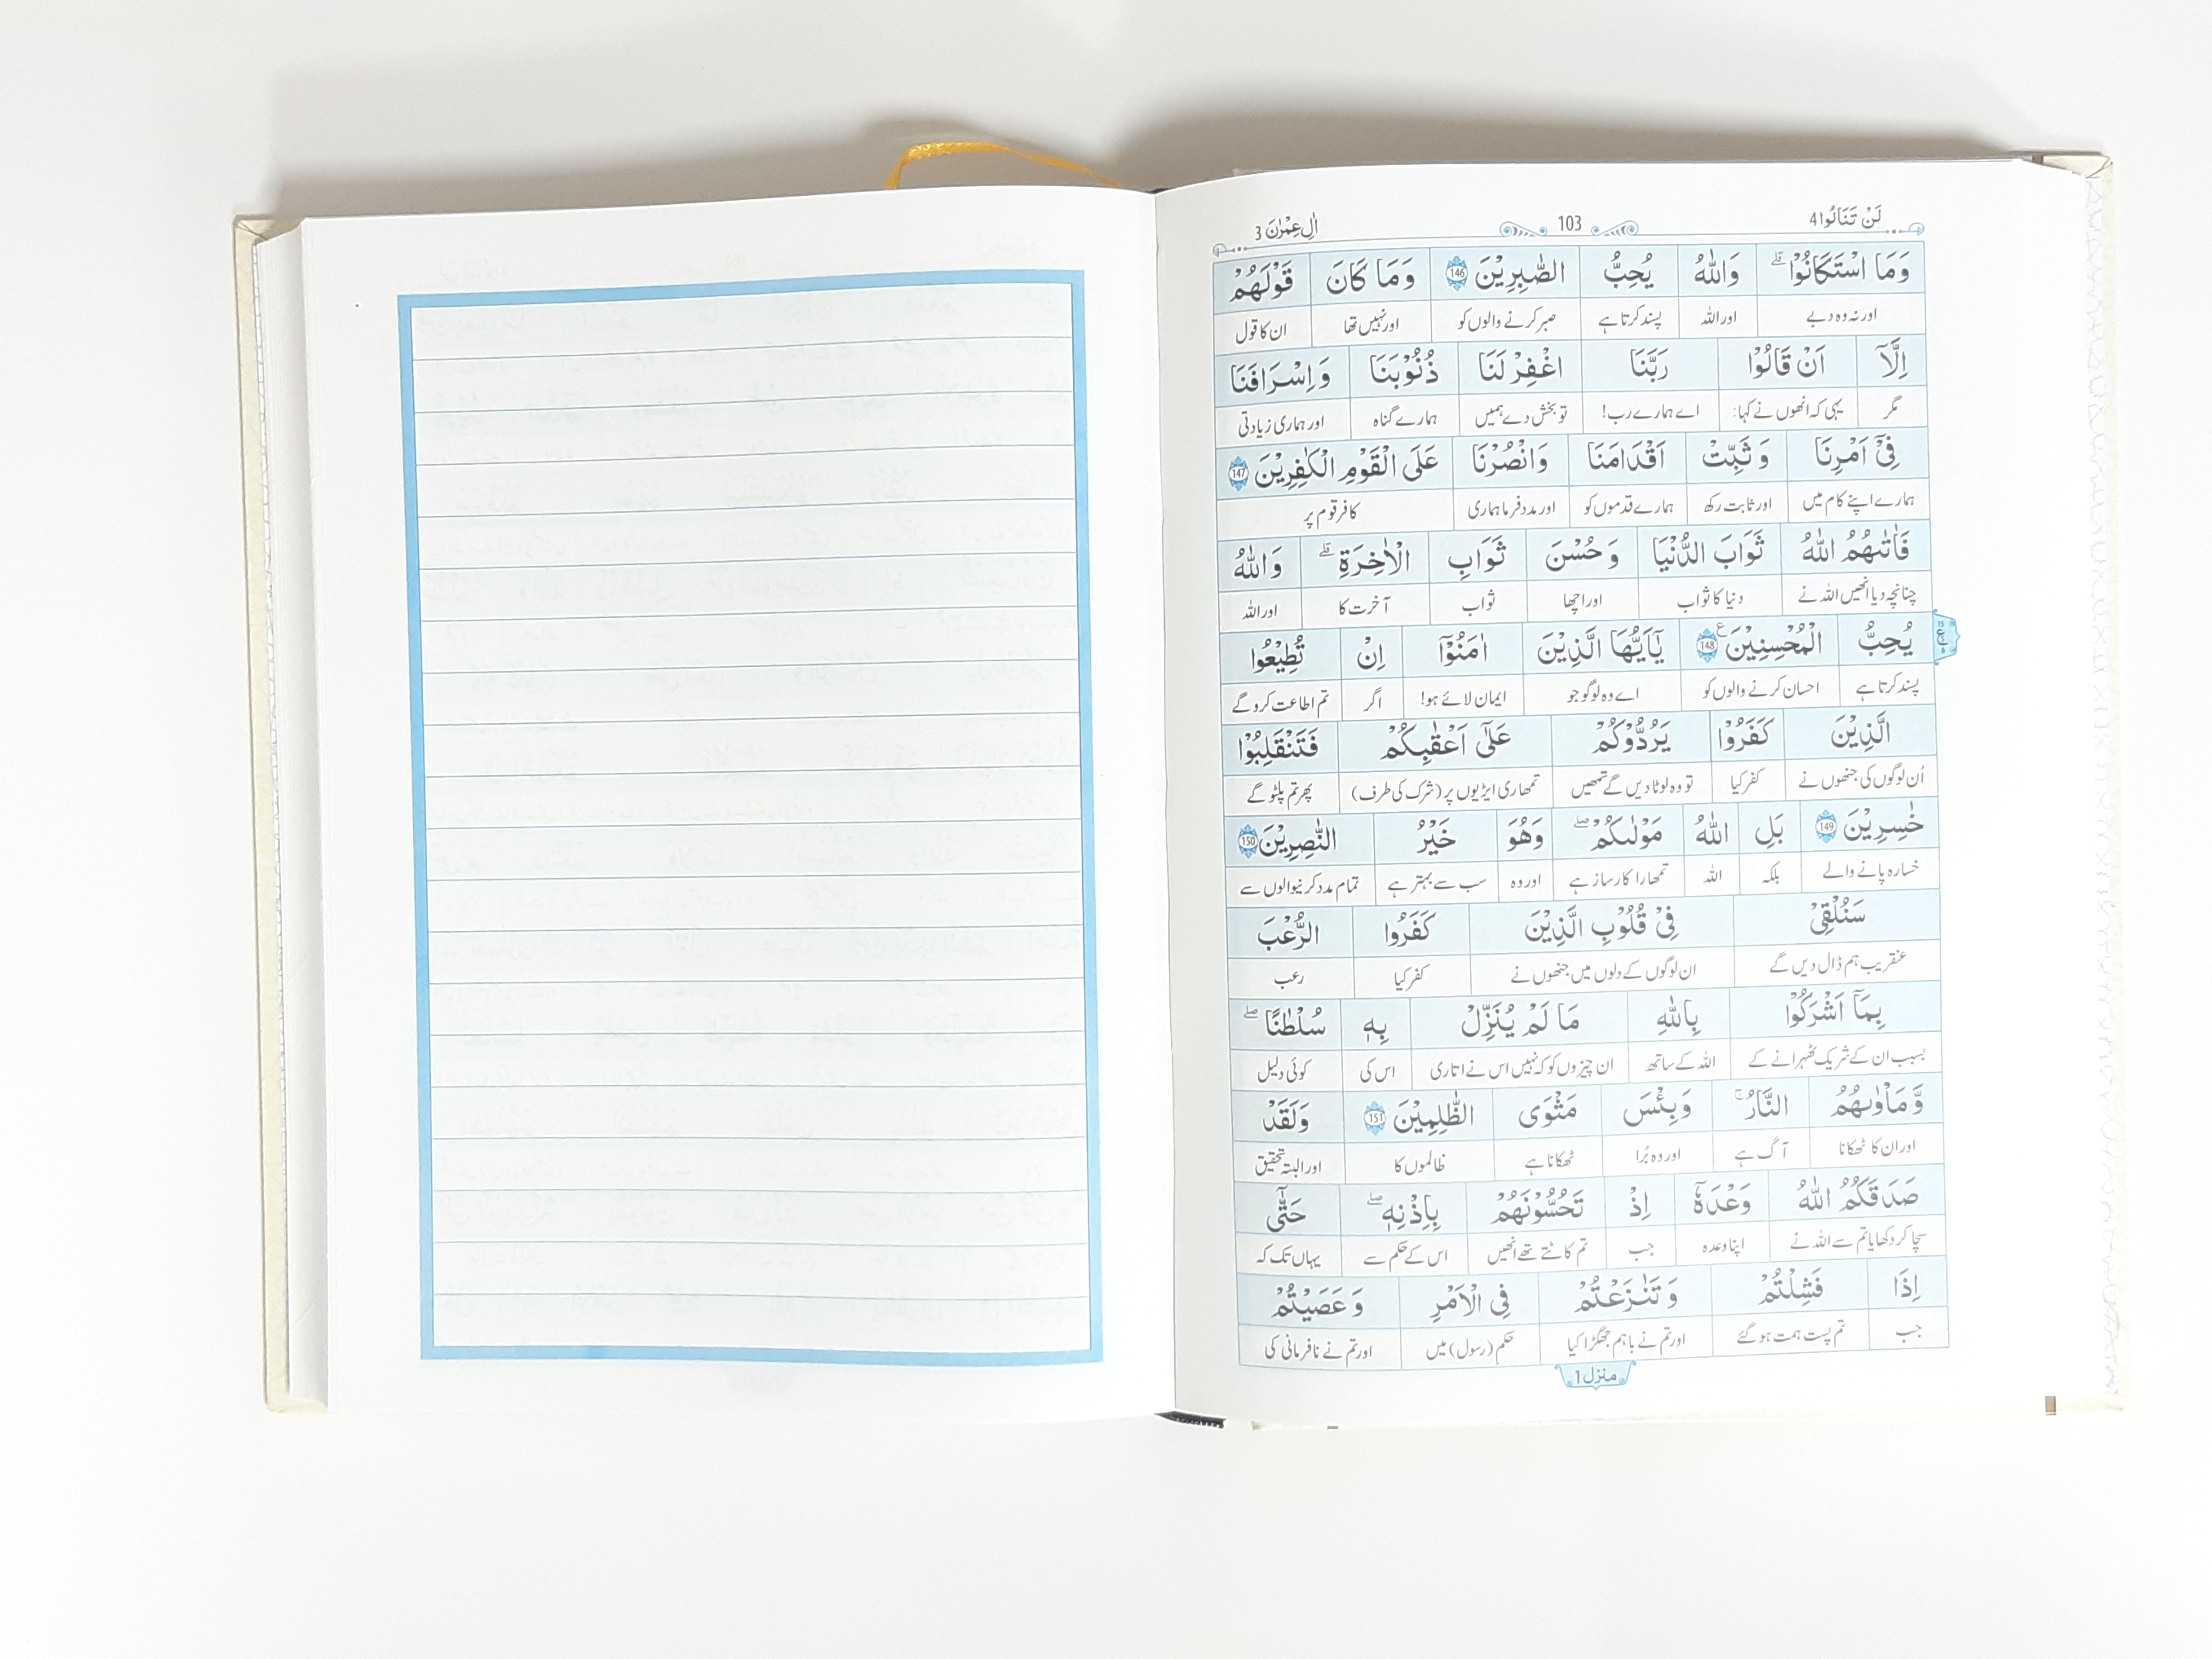 لَنْ تَنَالُوا 4 103 اٰلِ عِمْرٰنَ 3
وَمَا اسْتَكَانُوْا ۗ وَاللّٰهُ يُحِبُّ الصّٰبِرِيْنَ 146 وَمَا كَانَ قَوْلَهُمْ
اور نہ وہ دبے اور اللہ پسند کرتا ہے صبر کرنے والوں کو اور نہیں تھا ان کا قول
اِلَّآ اَنْ قَالُوْا رَبَّنَا اغْفِرْ لَنَا ذُنُوْبَنَا وَاِسْرَافَنَا
مگر یہی کہ انھوں نے کہا: اے ہمارے رب! تو بخش دے ہمیں ہمارے گناہ اور ہماری زیادتی
فِيْٓ اَمْرِنَا وَ ثَبِّتْ اَقْدَامَنَا وَانْصُرْنَا عَلَى الْقَوْمِ الْكٰفِرِيْنَ 147
ہمارے اپنے کام میں اور ثابت رکھ ہمارے قدموں کو اور مدد فرما ہماری کافر قوم پر
فَاٰتٰىهُمُ اللّٰهُ ثَوَابَ الدُّنْيَا وَحُسْنَ ثَوَابِ الْاٰخِرَةِ ۗ وَاللّٰهُ
چنانچہ دیا انھیں اللہ نے دنیا کا ثواب اور اچھا ثواب آخرت کا اور اللہ
يُحِبُّ الْمُحْسِنِيْنَ ع 148 يٰٓاَيُّهَا الَّذِيْنَ اٰمَنُوْٓا اِنْ تُطِيْعُوا
پسند کرتا ہے احسان کرنے والوں کو اے وہ لوگو جو ایمان لائے ہو! اگر تم اطاعت کرو گے
الَّذِيْنَ كَفَرُوْا يَرُدُّوْكُمْ عَلٰٓى اَعْقٰبِكُمْ فَتَنْقَلِبُوْا
اُن لوگوں کی جنھوں نے کفر کیا تو وہ لوٹا دیں گے تمھیں تمھاری ایڑیوں پر (شرک کی طرف) پھر تم پلٹو گے
خٰسِرِيْنَ 149 بَلِ اللّٰهُ مَوْلٰىكُمْ ۖ وَهُوَ خَيْرُ النّٰصِرِيْنَ 150
خسارہ پانے والے بلکہ اللہ تمھارا کارساز ہے اور وہ سب سے بہتر ہے تمام مدد کرنیوالوں سے
سَنُلْقِيْ فِيْ قُلُوْبِ الَّذِيْنَ كَفَرُوا الرُّعْبَ
عنقریب ہم ڈال دیں گے ان لوگوں کے دلوں میں جنھوں نے کفر کیا رعب
بِمَآ اَشْرَكُوْا بِاللّٰهِ مَا لَمْ يُنَزِّلْ بِهٖ سُلْطٰنًا ۖ
بسبب ان کے شریک ٹھہرانے کے اللہ کے ساتھ ان چیزوں کو کہ نہیں اس نے اتاری اس کی کوئی دلیل
وَّمَاْوٰىهُمُ النَّارُ ۚ وَبِئْسَ مَثْوَى الظّٰلِمِيْنَ 151 وَلَقَدْ
اور ان کا ٹھکانا آگ ہے اور وہ بُرا ٹھکانا ہے ظالموں کا اور البتہ تحقیق
صَدَقَكُمُ اللّٰهُ وَعْدَهٗٓ اِذْ تَحُسُّوْنَهُمْ بِاِذْنِهٖ ۖ حَتّٰٓى
سچا کر دکھایا تم سے اللہ نے اپنا وعدہ جب تم کاٹتے تھے انھیں اس کے حکم سے یہاں تک کہ
اِذَا فَشِلْتُمْ وَتَنٰزَعْتُمْ فِى الْاَمْرِ وَعَصَيْتُمْ
جب تم پست ہمت ہو گئے اور تم نے باہم جھگڑا کیا حکم (رسول) میں اور تم نے نافرمانی کی
منزل 1